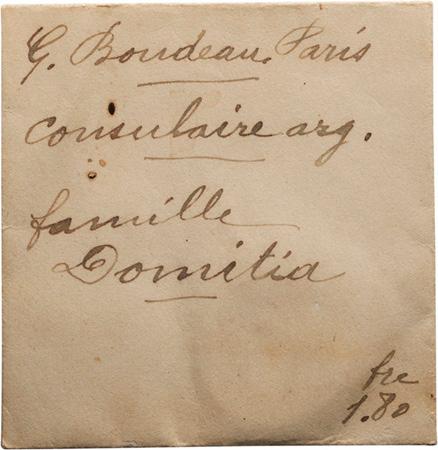 G. Boudeau. Paris
consulaire arg.
famille
Domitia
frc
1.80